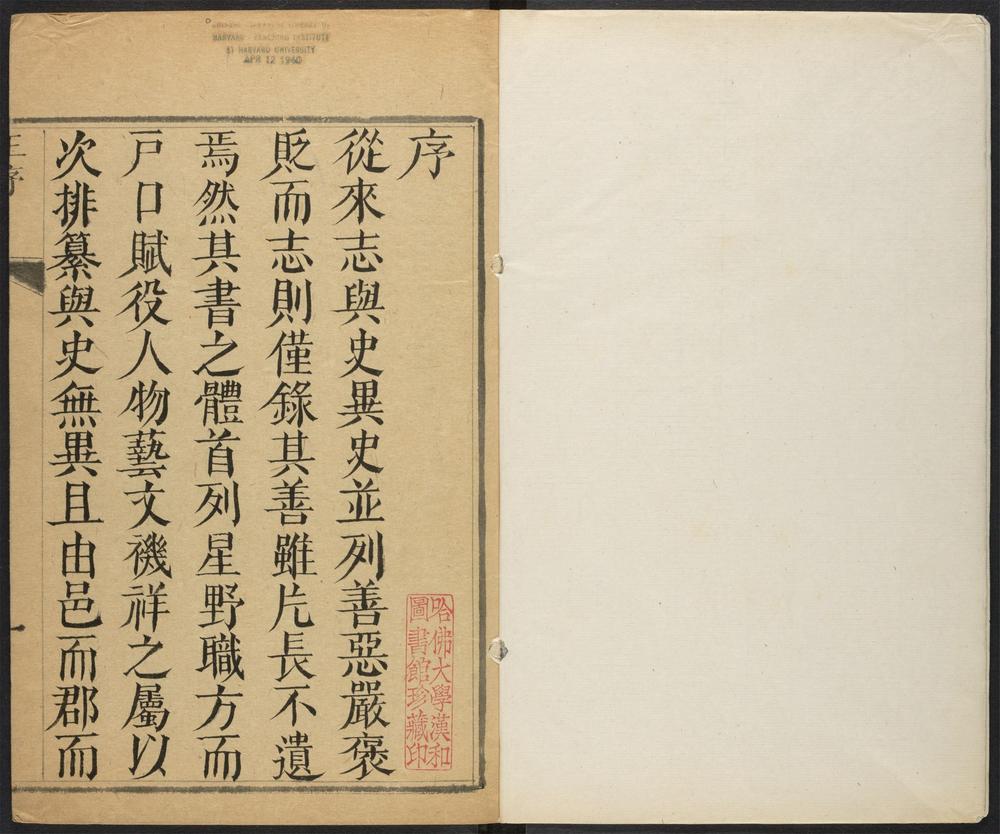 HARVARD-YENCHING INSTITUTE
AT HARVARD UNIVERSITY
APR 12 1940
序
從來志與史異史並列善惡嚴褒
貶而志則僅錄其善雖片長不遺
焉然其書之體首列星野職方而
戸口賦役人物藝文禨祥之屬以
次排纂與史無異且由邑而郡而
哈佛大學漢和
圖書館珍藏印